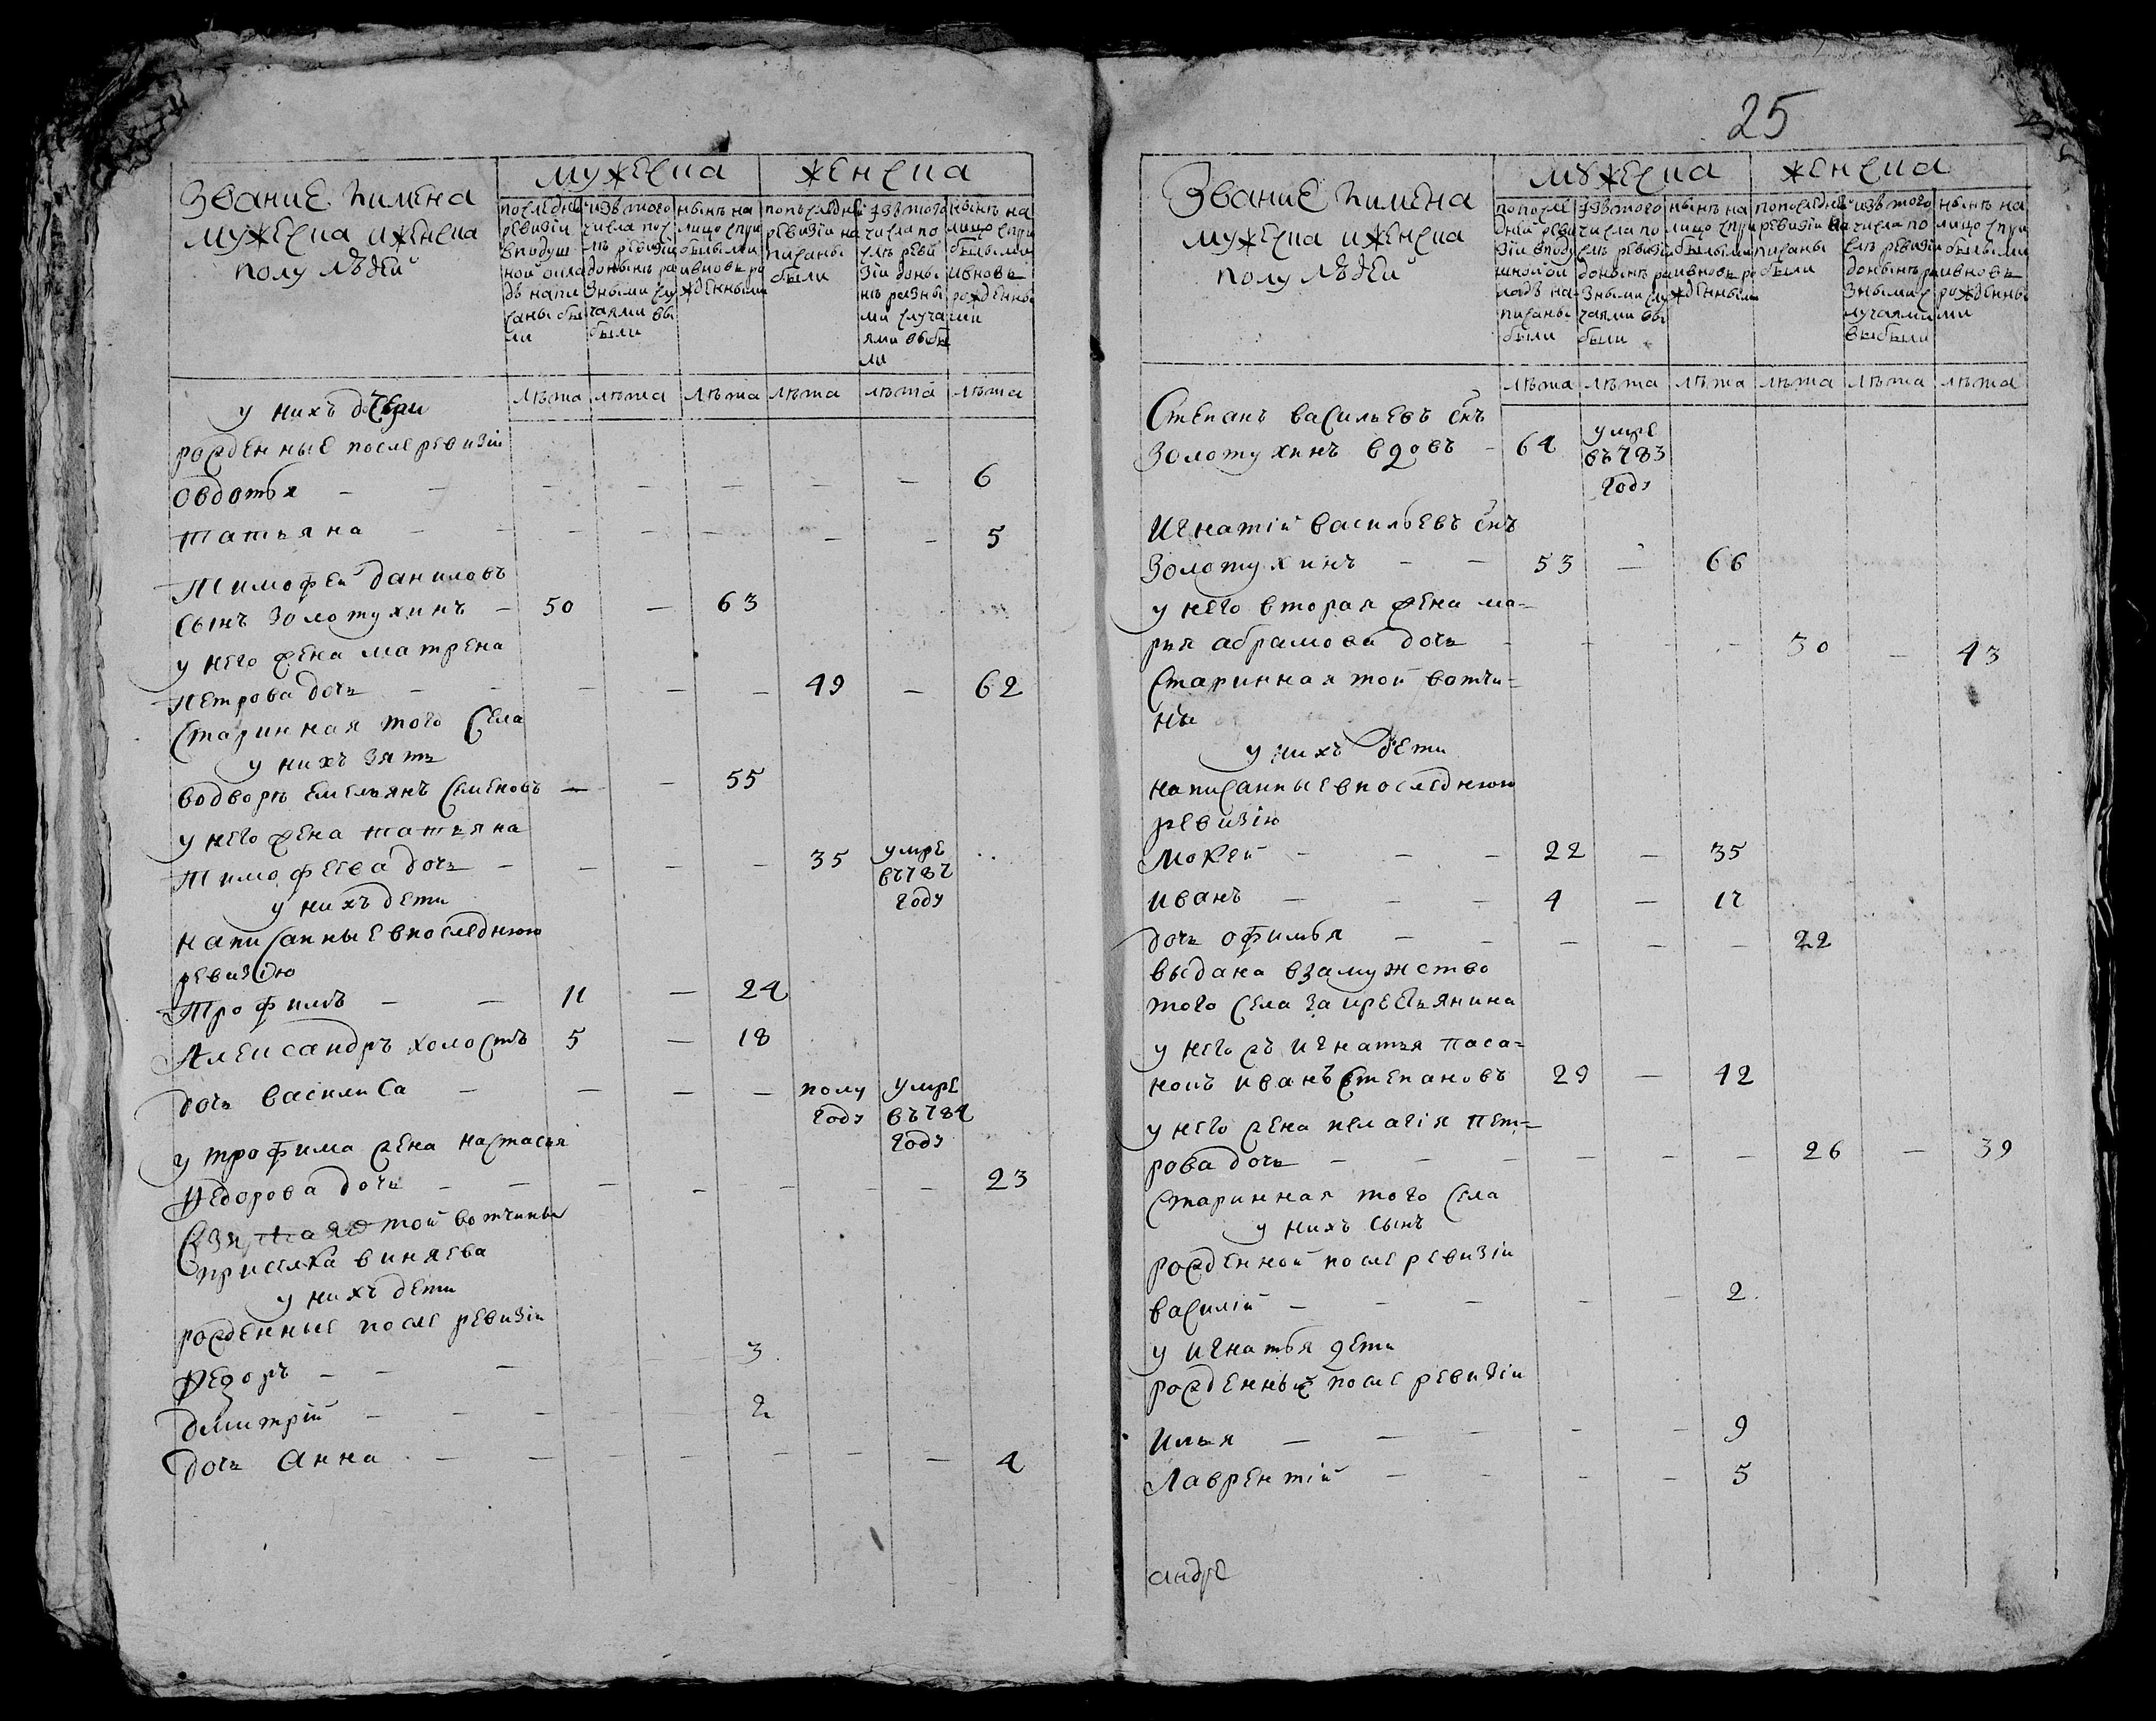 25
Звание иимена
мужеска иженска
полу лѣдей
мужеска
женска
последне
ревизіи
вподуш
ной окла
дъ напи
саны бы
ли
изъ того
числа пос
лѣ ревизіи
донынѣ ра
зными слу
чаями вы
были
нынѣ на
лицо спри
былыми
ивновь ро
жденными
попоследне
ревизіи на
писаны
были
изъ того
числа по
слѣ реви
зіи доны
нѣ разны
ми случа
ями выбы
ли
нынѣ на
лицо спри
былыми
ивновь
рожденны
ми
лѣта лѣта лѣта лѣта лѣта лѣта
у нихъ дочери
рожденные после ревизіи
овдотья — — — — — — — 6
татьяна — — — — — — — 5
Тимофей даниловъ
сынъ золотухинъ — 50 — 63
у него жена матрена
петрова дочь — — — — — 49 — 62
старинная того села
у нихъ зять
водворѣ емельянъ семеновъ — — 55
у него жена татьяна
тимофеева дочь — — — — 35 умре
въ787
году
у нихъ дети
написанные впоследнюю
ревизію
Трофимъ — — 11 — 24
Александръ холостъ 5 — 18
дочь василиса — — — — полу умре
году въ784
году
у трофима жена настасья
федорова дочь — — — — — — — 23
взятая стой вотчины
приселка виняева
у нихъ дети
рожденные после ревизіи
федоръ — — — 3
дмитрій — — — — — 2
дочь анна — — — — — — 4
Звание иимена
мужеска иженска
полу лѣдей
мужеска
женска
попосле
дней реви
зіи вподу
шномок
ладѣ на
писаны
были
изъ того
числа по
слѣ ревизіи
донынѣ ра
зными слу
чаями вы
были
нынѣ на
лицо спри
былыми
ивновь ро
жденными
попоследне
ревизіи на
писаны
были
изъ того
числа по
слѣ ревизіи
донынѣ ра
зными с
лучаями
выбыли
нынѣ на
лицо спри
былыми
ивновь
рожденны
ми
лѣта лѣта лѣта лѣта лѣта лѣта
Степанъ васильевъ снъ
золотухинъ вдовъ — 64 умре
въ783
году
Игнатій васильевъ снъ
золотухинъ — — 53 — 66
у него вторая жена ма=
рья абрамова дочь — — — — 30 — 43
старинная той вотчи=
ны
у нихъ дети
написанные впоследнюю
ревизію
мокей — — — 22 — 35
иванъ — — — 4 — 17
дочь офимья — — — — — 22
выдана взамужство
того села за крестьянина
у него жъ игнатья паса=
нокъ иванъ степановъ 29 — 42
у него жена пелагія пет=
рова дочь — — — — — — 26 — 39
старинная того села
у нихъ сынъ
рожденной после ревизіи
василій — — — — — 2
у игнатья дети
рожденные после ревизіи
илья — — — — — 9
лаврентій — — — — 5
андре